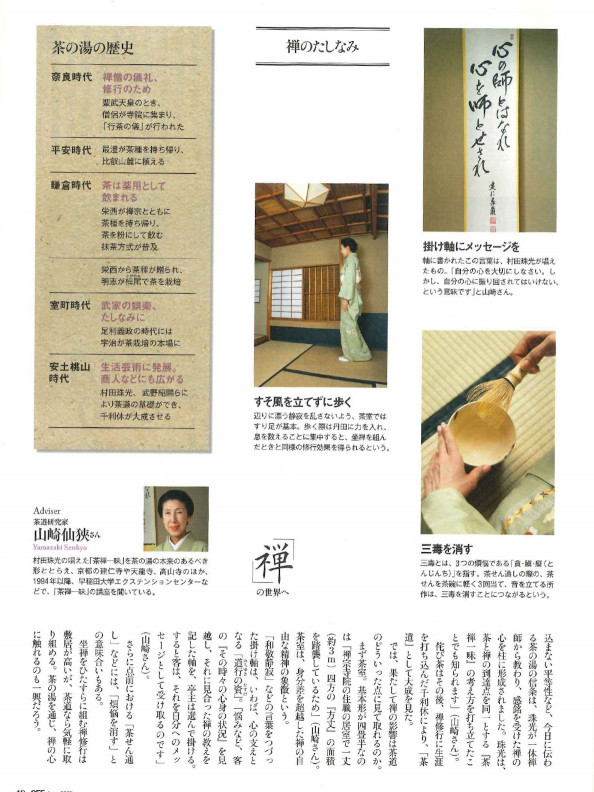 茶の湯の歴史
奈良時代
禅僧の儀礼、
修行のため
聖武天皇のとき、
僧侶が寺院に集まり、
「行茶の儀」が行われた
平安時代
最澄が茶種を持ち帰り、
比叡山麓に植える
鎌倉時代
茶は薬用として
飲まれる
栄西が禅宗とともに
茶種を持ち帰り、
茶を粉にして飲む
抹茶方式が普及
栄西から茶種が贈られ、
明恵が栂尾で茶を栽培
室町時代
武家の娯楽、
たしなみに
足利義政の時代には
宇治が茶栽培の本場に
安土桃山
時代
生活芸術に発展。
商人などにも広がる
村田珠光、武野紹鷗らに
より茶道の基礎ができ、
千利休が大成させる
禅のたしなみ
心の師とはなれ
心を師とせされ
掛け軸にメッセージを
軸に書かれたこの言葉は、村田珠光が唱え
たもの。「自分の心を大切にしなさい。し
かし、自分の心に振り回されてはいけない、
という意味です」と山崎さん。
すそ風を立てずに歩く
辺りに漂う静寂を乱さないよう、茶室では
すり足が基本。歩く際は丹田に力を入れ、
息を数えることに集中すると、坐禅を組ん
だときと同様の修行効果を得られるという。
三毒を消す
三毒とは、3つの煩悩である「貪・瞋・癡(と
んじんち)」を指す。茶せん通しの際の、茶
せんを茶碗に軽く3回当て、音を立てる所
作は、三毒を消すことにつながるという。
Adviser
茶道研究家
山崎仙狹さん
Yamazaki Senkyo
村田珠光の唱えた「茶禅一味」を茶の湯の本来のあるべき
形ととらえ、京都の建仁寺や天龍寺、高山寺のほか、
1994年以降、早稲田大学エクステンションセンターな
どで、「茶禅一味」の講座を開いている。
「禅」
の世界へ
込まない平常性など、今日に伝わ
る茶の湯の信条は、珠光が一休禅
師から教わり、感銘を受けた禅の
心を柱に形成されました。珠光は、
茶と禅の到達点を同一とする『茶
禅一味』の考え方を打ち立てたこ
とでも知られます」(山崎さん)。
侘び茶はその後、禅修行に生涯
を打ち込んだ千利休により、「茶
道」として大成を見た。
では、果たして禅の影響は茶道
のどういった点に見て取れるのか。
まず茶室。基本形が四畳半なの
は「禅宗寺院の住職の居室で一丈
(約3m)四方の『方丈』の面積
を踏襲しているため」(山崎さん)。
茶室は、身分差を超越した禅の自
由な精神の象徴という。
「和敬静寂」などの言葉をつづっ
た掛け軸は、いわば、心の支えと
なる「道行の資」。「悩みなど、客
の『その時々の心身の状況』を見
越し、それに見合った禅の教えを
記した軸を、亭主は選んで掛ける。
すると客は、それを自分へのメッ
セージとして受け取るのです」
(山崎さん)。
さらに点前における「茶せん通
し」などには、「煩悩を消す」と
の意味合いもある。
坐禅をひたすらに組む禅修行は
敷居が高いが、茶道なら気軽に取
り組める。茶の湯を通じ、禅の心
に触れるのも一興だろう。